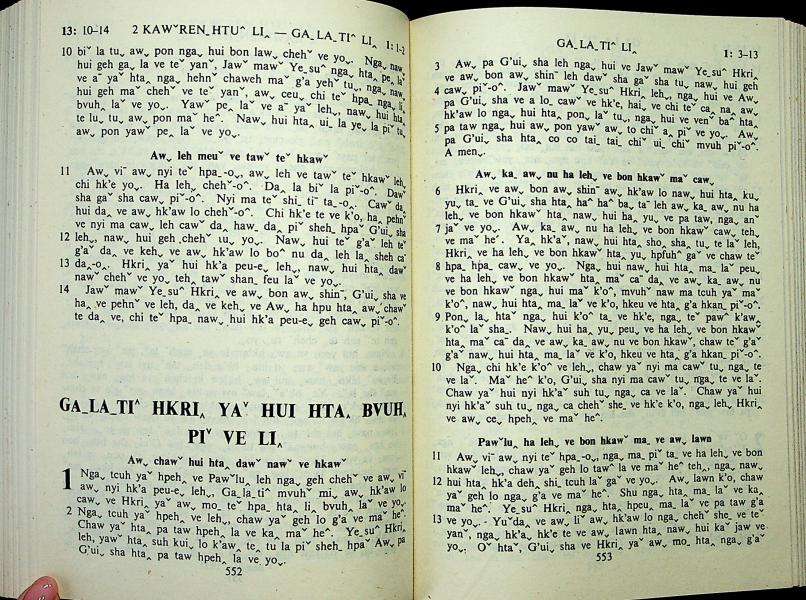 13: 10–14 2 KAWˇREN‸HTUˆ LI‸ — GA_LA_TIˆ LI‸ 1: 1-2
10 biˇ la tu˯ aw˯ pon nga˯ hui bon law˯ chehˇ ve yo˯. Nga˯ naw˯
hui geh ga˯ la ve teˇ yanˇ, Jawˇ mawˇ Ye_suˆ nga˯ hta‸ pe‸ laˇ
ve aˇ yaˇ hta‸ nga˯ hehnˇ chaweh maˇ g'a yehˇ tu˯, nga˯ naw˯
hui geh maˇ chehˇ ve teˇ yanˇ, aw˯ ceu˯ chi teˇ hpa_ nga˯ li‸
bvuh‸ laˇ ve yo˯. Yawˇ pe‸ laˇ ve aˇ yaˇ leh˯, naw˯ hui hta‸
te lu˯ tu˯ aw˯ pon maˇ heˆ. Naw˯ hui hta‸ ui_ la ye‸ la piˇ tu˯
aw˯ pon yawˇ pe‸ laˇ ve yo˯.
Aw˯ leh meuˇ ve tawˇ teˇ hkawˇ
11 Aw˯ viˉ aw˯ nyi teˇ hpa_-o˯, aw˯ leh ve tawˇ te hkawˇ leh˯
chi hk'e yo˯. Ha leh˯ chehˇ-oˆ. Da‸ la biˇ la piˇ-oˆ. Dawˇ
sha gaˇ sha caw˯ piˇ-oˆ. Nyi ma teˇ shi_ tiˉ ta_-o˯. Cawˇ da‸
hui da‸ ve aw˯ hk'aw lo chehˇ-oˆ. Chi hk'e te ve k'o, ha‸ pehnˇ
ve nyi ma caw˯ leh cawˇ da‸ haw_ da‸ piˇ sheh_ hpaˇ G'ui‸ sha
12 leh˯, naw˯ hui geh chehˇ tu˯ yo˯. Naw˯ hui teˇ g'aˇ leh teˇ
g'aˇ da‸ ve keh˯ ve aw˯ hk'aw lo boˆ nu da‸ leh la‸ sheh caˇ
13 da_-o‸. Hkri‸ yaˇ hui hk'a peu-e‸ leh˯, naw˯ hui hta‸ dawˇ
nawˇ chehˇ ve yo˯ teh‸ tawˇ shan_ feu laˇ ve yo˯.
14 Jawˇ mawˇ Ye_suˆ Hkri‸ ve aw˯ bon aw˯ shinˉ, G'ui‸ sha ve
ha‸ ve pehnˇ ve leh, da‸ ve keh˯ ve Aw˯ ha hpu hta‸ aw˯ chawˇ
te da‸ ve, chi teˇ hpa_ naw˯ hui hk'a peu-e‸ geh caw˯ piˇ-oˆ.
GA_LA_TIˆ HKRI‸ YAˇ HUI HTA‸ BVUH‸
PIˇ VE LI‸
Aw˯ chawˇ hui hta‸ dawˇ nawˇ ve hkawˇ
1 Nga˯ tcuh yaˇ hpeh˯ ve Pawˇlu‸ leh nga˯ geh chehˇ ve aw˯ viˉ
aw˯ nyi hk'a peu-e‸ leh˯, Ga_la_tiˆ mvuhˇ mi˯ aw˯ hk'aw lo
caw˯ ve Hkri‸ yaˇ aw˯ mo_ teˇ hpa_ hta‸ li‸ bvuh‸ laˇ ve yo˯.
2 Nga˯ tcuh yaˇ hpeh˯ ve leh˯, chaw yaˇ geh lo g'a ve maˇ heˆ.
Chaw yaˇ hta‸ pa taw hpeh‸ la ve ka‸ maˇ heˆ. Ye_suˆ Hkri‸
leh, yawˇ hta‸ suh kui˯ lo k'aw˯ te‸ tu la piˇ sheh_ hpaˇ Aw˯ pa
G'ui‸ sha hta‸ pa taw hpeh‸ la ve yo˯.
552
GA_LA_TIˆ LI‸ 1: 3–13
3 Aw˯ pa G'ui‸ sha leh nga˯ hui ve Jawˇ mawˇ Ye_suˆ Hkri‸
ve aw˯ bon aw˯ shinˉ leh dawˇ sha gaˇ sha tu˯ naw˯ hui geh
4 caw˯ piˇ-oˆ. Jawˇ mawˇ Ye_suˆ Hkri‸ leh˯, nga˯ hui ve Aw˯
pa G'ui‸ sha ve a lo_ cawˇ ve hk'e, hai˯ ve chi teˇ ca_ na‸ aw˯
hk'aw lo nga˯ hui hta‸ pon‸ laˇ tu˯, nga˯ hui ve venˇ baˆ hta‸
5 pa taw nga˯ hui aw˯ pon yawˇ aw˯ to chiˇ a‸ piˇ ve yo˯. Aw˯
pa G'ui‸ sha hta‸ co co tai_ tai_ chiˇ ui_ chiˇ mvuh piˇ-oˆ.
A men˯.
Aw˯ ka‸ aw˯ nu ha leh˯ ve bon hkawˇ maˇ caw˯
6 Hkri‸ ve aw˯ bon aw˯ shinˉ aw˯ hk'aw lo naw˯ hui hta‸ ku˯
yu˯ ta‸ ve G'ui‸ sha hta‸ haˆ haˆ ba˯ taˉ leh aw˯ ka‸ aw˯ nu ha
leh˯ ve bon hkawˇ hta‸ naw˯ hui ha‸ yu˯ ve pa taw˯ nga˯ anˇ
7 jaˇ ve yo˯. Aw˯ ka‸ aw˯ nu ha leh˯ ve bon hkawˇ caw˯ teh‸
ve maˇ heˆ. Ya‸ hk'aˇ, naw˯ hui hta‸ sho‸ sha‸ tu˯ te laˇ leh,
Hkri‸ ve ha leh˯ ve bon hkawˇ hta‸ yu˯ hpfuhˆ gaˇ ve chaw teˇ
8 hpa_ hpa_ caw˯ ve yo˯. Nga˯ hui naw˯ hui hta‸ ma_ laˇ peu˯
ve ha leh˯ ve bon hkawˇ hta‸ maˇ caˇ da‸ ve aw˯ ka‸ aw˯ nu
ve bon hkawˇ nga˯ hui maˇ k'oˆ, mvuhˇ naw ma tcuh yaˇ maˇ
k'oˆ, naw˯ hui hta‸ ma_ laˇ ve k'o, hkeu ve hta‸ g'a hkan_ piˇ-oˆ.
9 Pon‸ la˯ htaˇ nga˯ hui k'oˆ ta‸ ve hk'e, nga˯ teˇ pawˇ k'aw˯
k'oˆ laˇ sha_. Naw˯ hui ha‸ yu˯ peu˯ ve ha leh˯ ve bon hkawˇ
hta‸ maˇ caˇ da‸ ve aw˯ ka‸ aw˯ nu ve bon hkawˇ, chaw teˇ g'aˇ
g'aˇ naw˯ hui hta‸ ma_ laˇ ve k'o, hkeu ve hta‸ g'a hkan_ piˇ-oˆ.
10 Nga˯ chi hk'e k'oˆ ve leh˯, chaw yaˇ nyi ma cawˇ tu˯ nga˯ te
ve laˇ. Maˇ heˆ k'o, G'ui‸ sha nyi ma cawˇ tu˯ nga˯ te ve laˇ.
Chaw yaˇ hui nyi hk'aˇ suh tu˯ nga˯ ca ve laˇ. Chaw yaˇ hui
nyi hk'aˇ suh tu˯ nga˯ ca chehˇ she_ ve hk'e k'o, nga˯ leh˯ Hkri‸
ve aw˯ ce˯ hpeh˯ ve maˇ heˆ.
Pawˇlu‸ ha leh˯ ve bon hkawˇ ma_ ve aw˯ lawn
11 Aw˯ viˉ aw˯ nyi teˇ hpa_-o˯, nga˯ ma_ piˇ ta‸ ve ha leh˯ ve bon
hkawˇ leh˯, chaw yaˇ geh lo tawˇ la ve maˇ heˆ teh‸, nga˯ naw˯
12 hui hta‸ hk'a deh‸ shi‸ tcuh laˇ gaˇ ve yo˯. Aw˯ lawn k'o, chaw
yaˇ geh lo nga˯ g'a ve maˇ heˆ. Shu nga˯ hta‸ ma_ laˇ ve ka‸
maˇ heˆ. Ye_suˆ Hkri‸ nga˯ hta‸ hpeu‸ ma_ laˇ ve pa taw g'a
13 ve yo˯. Yuˇda‸ ve aw˯ liˇ aw˯ hk'aw lo nga˯ chehˇ she_ ve teˇ
yanˇ, nga˯ hk'a‸ hk'e te ve aw˯ lawn hta‸ naw˯ hui kaˇ jaw ve
yo˯. Oˇ htaˇ, G'ui‸ sha ve Hkri‸ yaˇ aw˯ mo_ hta‸ nga˯ g'aˇ
553